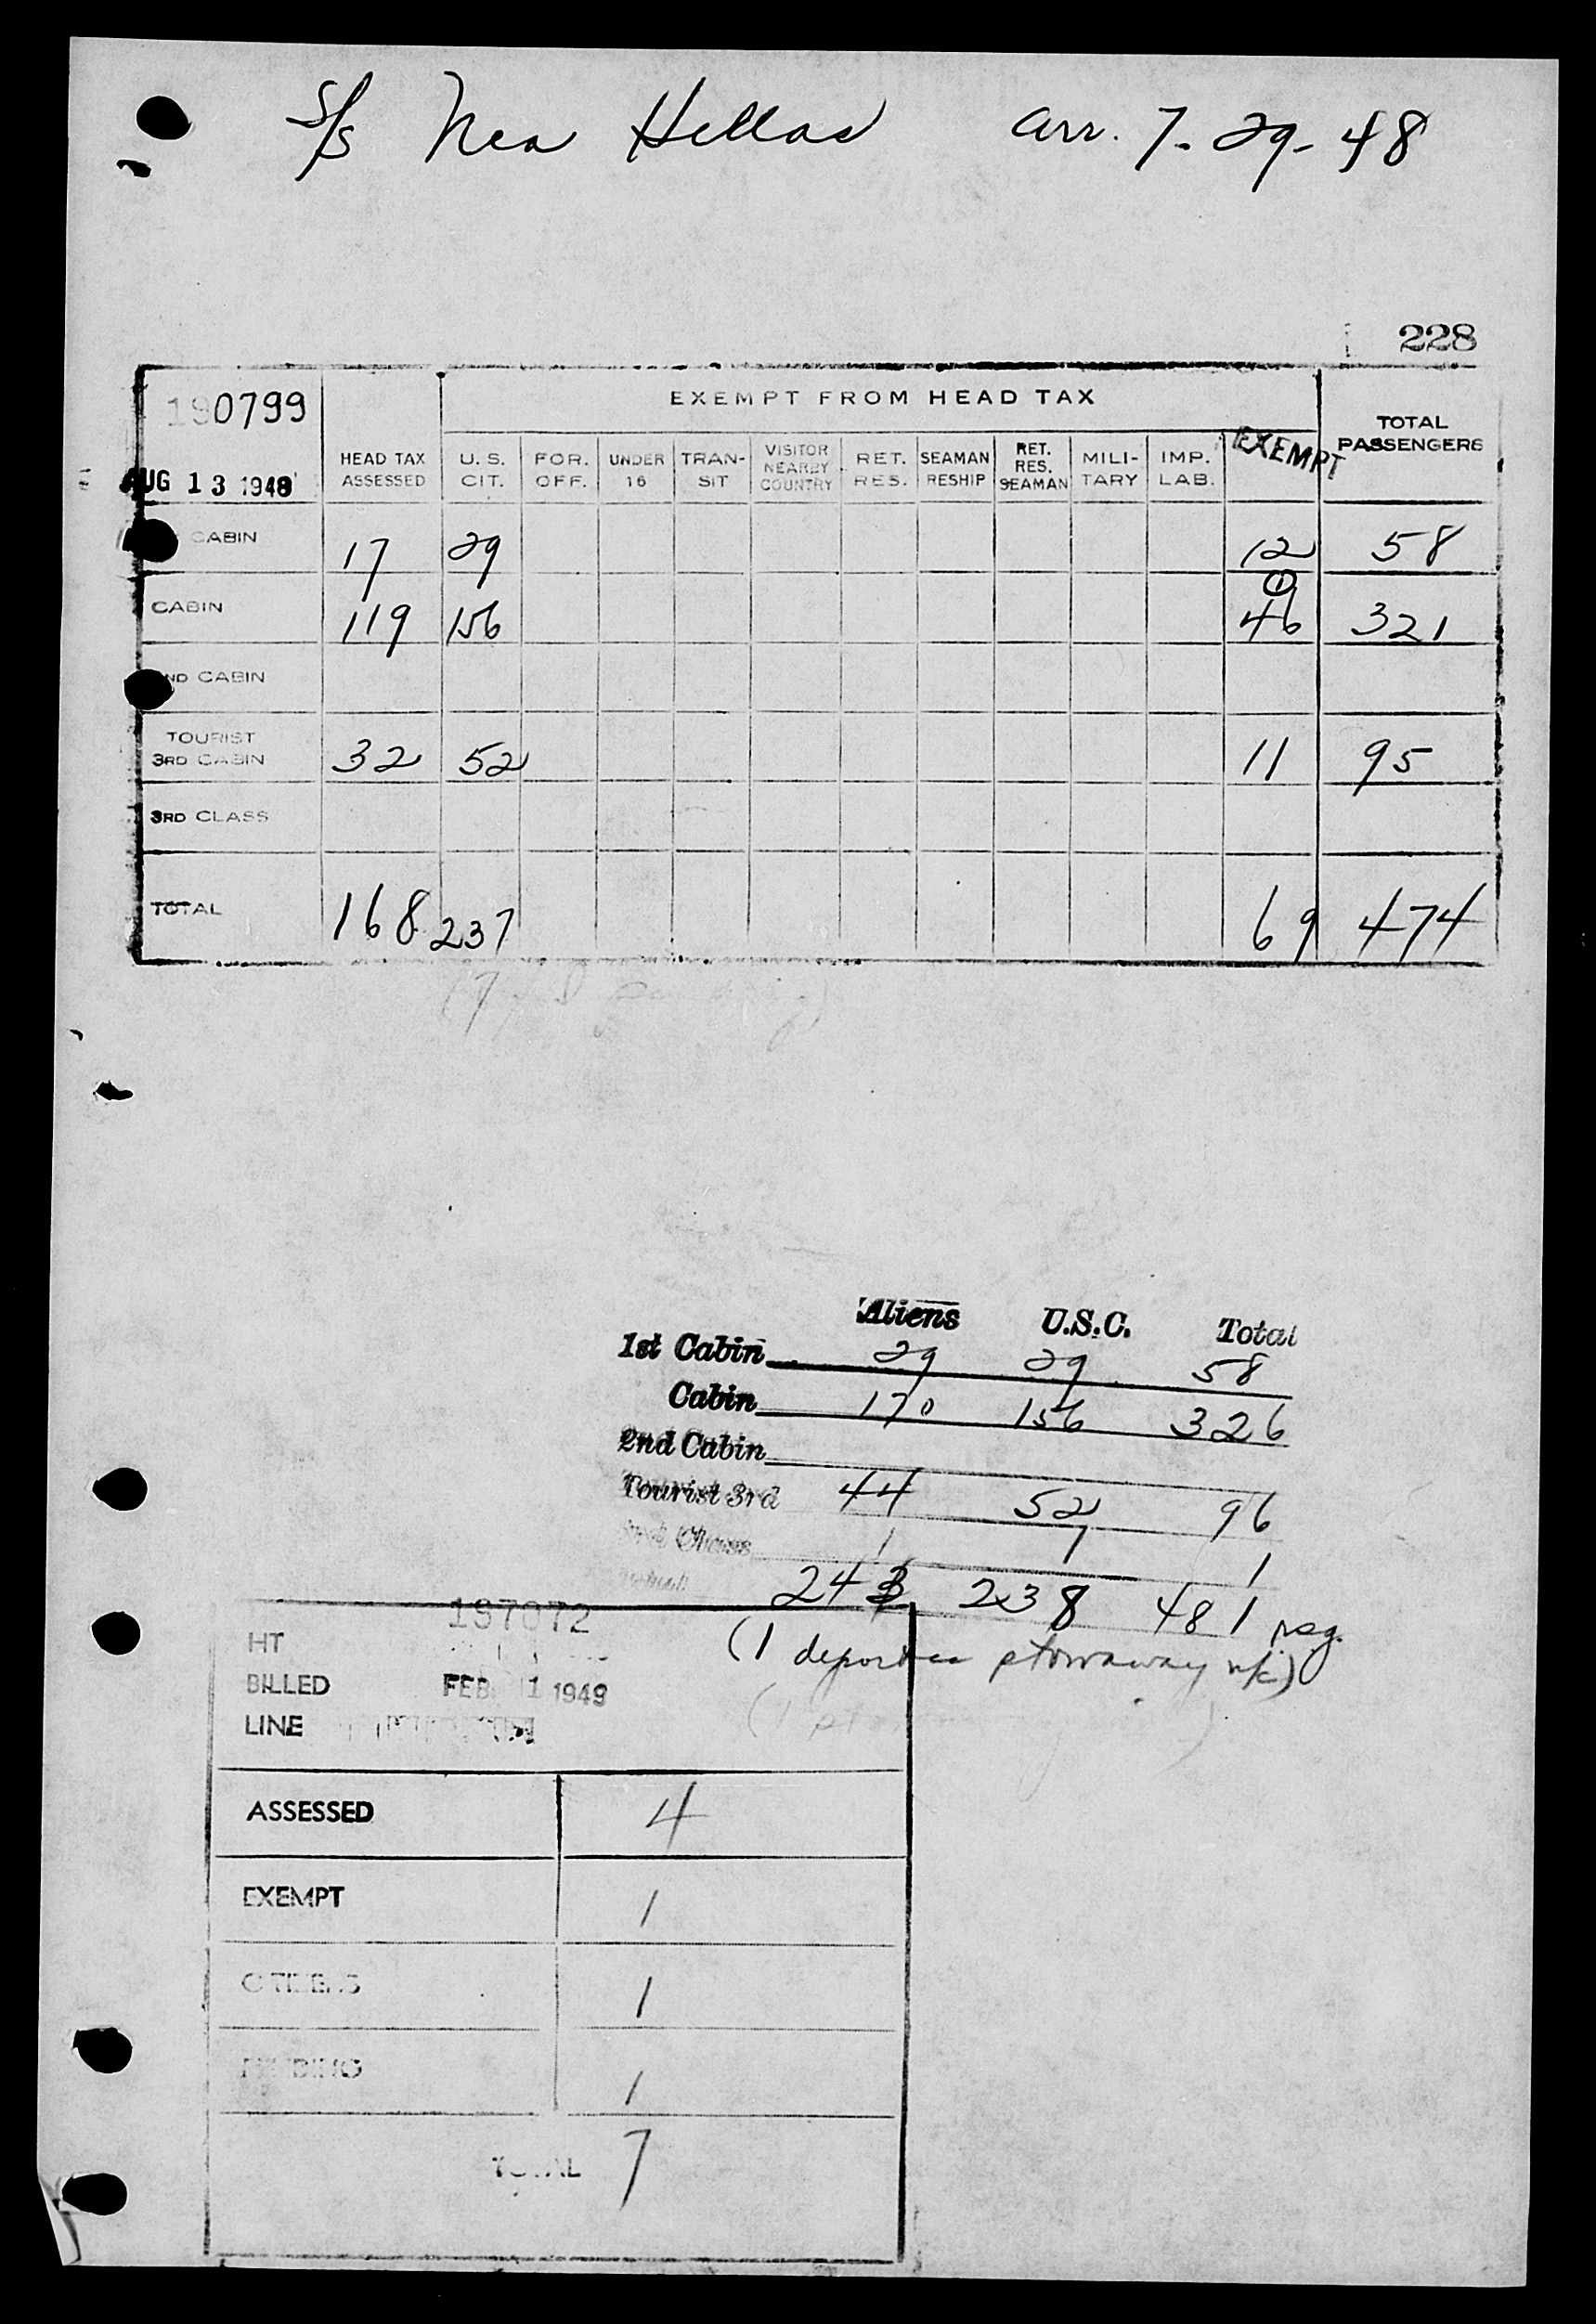 S/S Nea Hellas arr. 7-29-48
228
190799
AUG 13 1948
EXEMPT FROM HEAD TAX
HEAD TAX ASSESSED U.S. CIT. FOR. OFF. UNDER 16 TRAN-SIT VISITOR NEARBY COUNTRY RET. RES. SEAMAN RESHIP RET. RES. SEAMAN MILI-TARY IMP. LAB. EXEMPT TOTAL PASSENGERS
CABIN 17 29 12 58
1
CABIN 119 156 46 321
2ND CABIN
TOURIST
3RD CABIN 32 52 11 95
3RD CLASS
TOTAL 168 237 69 474
Aliens U.S.C. Total
1st Cabin 29 29 58
Cabin 170 156 326
2nd Cabin
Tourist 3rd 44 52 96
Class 1 1
24 238 481 psg.
(1 deportee stowaway n/c)
197072
HT
BILLED FEB 1 1949
LINE
ASSESSED 4
EXEMPT 1
CITIZENS 1
PENDING 1
TOTAL 7